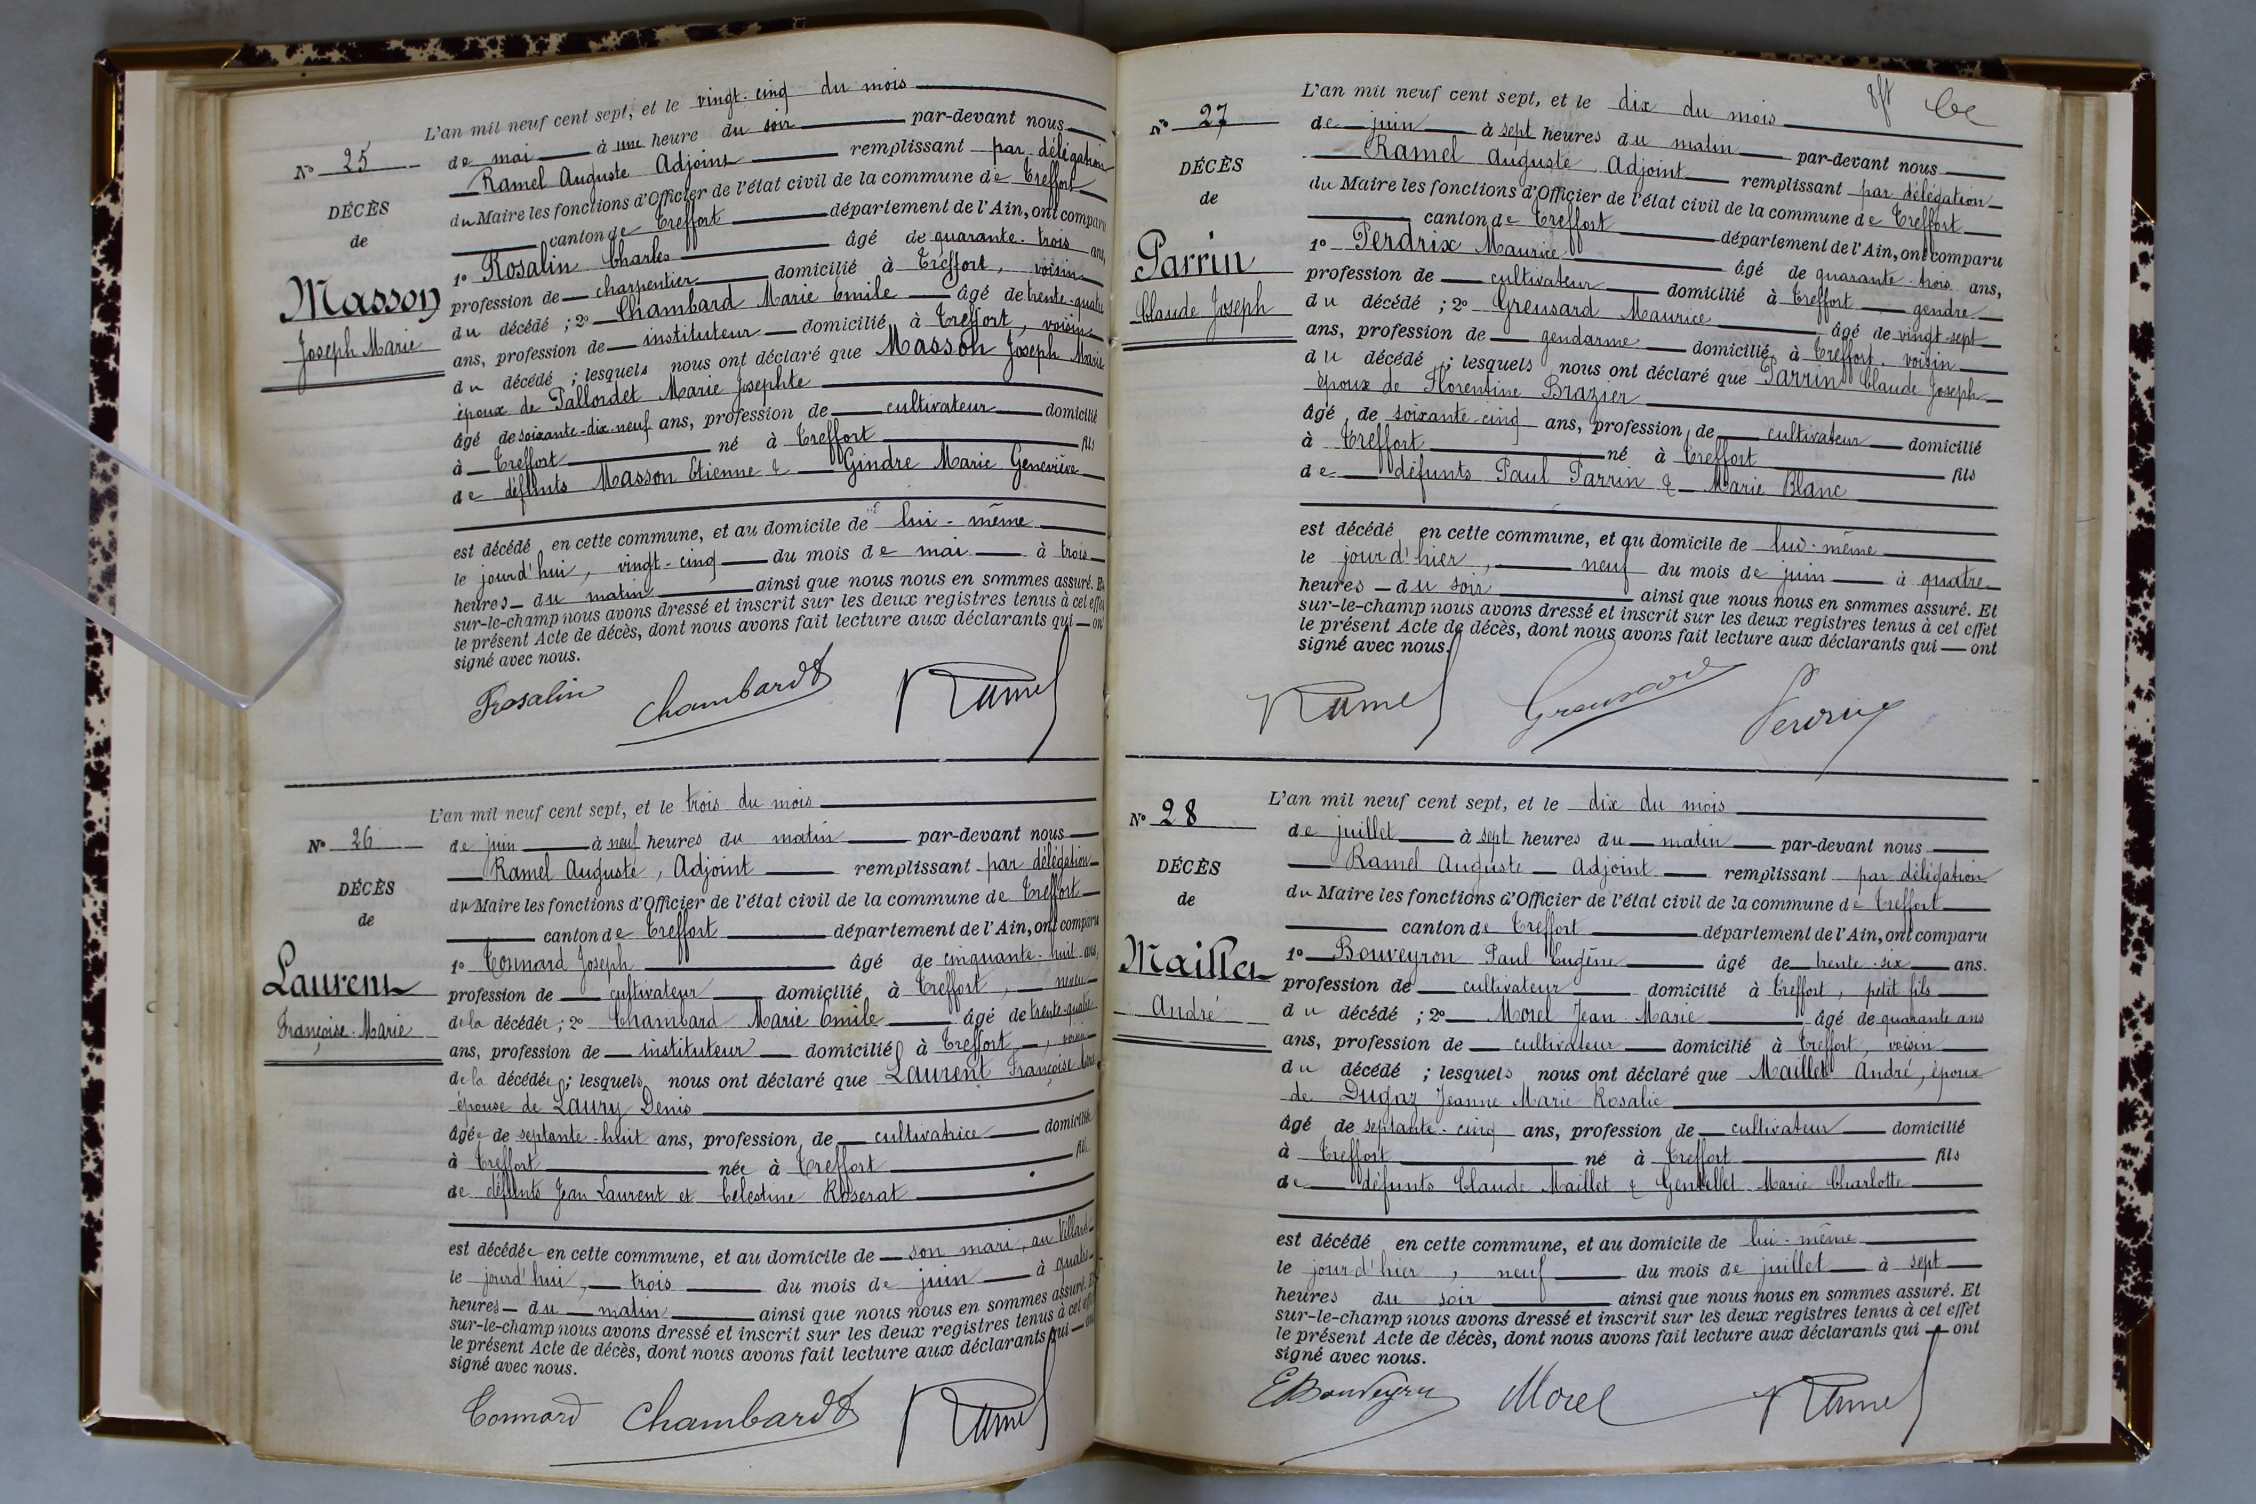 L'an mil neuf cent sept, et le vingt-cinq du mois
N° 25
de mai à une heure du soir par-devant nous
Ramel Auguste Adjoint remplissant par délégation
DÉCÈS
du Maire les fonctions d'Officier de l'état civil de la commune de Treffort
de
canton de Treffort département de l'Ain, ont comparu
1° Rosalin Charles âgé de quarante-trois ans,
Masson
profession de charpentier domicilié à Treffort, voisin
du décédé ; 2° Chambard Marie Emile âgé de trente-quatre
Joseph Marie
ans, profession de instituteur domicilié à Treffort, voisin
du décédé ; lesquels nous ont déclaré que Masson Joseph Marie
époux de Pallordet Marie Josephte
âgé de soixante-dix-neuf ans, profession de cultivateur domicilié
à Treffort né à Treffort fils
de défunts Masson Etienne & Gindre Marie Geneviève
est décédé en cette commune, et au domicile de lui-même
le jourd'hui, vingt-cinq du mois de mai à trois
heures du matin ainsi que nous nous en sommes assuré. Et
sur-le-champ nous avons dressé et inscrit sur les deux registres tenus à cet effet
le présent Acte de décès, dont nous avons fait lecture aux déclarants qui ont
signé avec nous.
Rosalin Chambard Ramel
L'an mil neuf cent sept, et le trois du mois
N° 26
de juin à neuf heures du matin par-devant nous
Ramel Auguste, Adjoint remplissant par délégation
DÉCÈS
du Maire les fonctions d'Officier de l'état civil de la commune de Treffort
de
canton de Treffort département de l'Ain, ont comparu
1° Tonnard Joseph âgé de cinquante-huit ans,
Laurent
profession de cultivateur domicilié à Treffort, neveu
de la décédée ; 2° Chambard Marie Emile âgé de trente-quatre
Françoise-Marie
ans, profession de instituteur domicilié à Treffort, voisin
de la décédée ; lesquels nous ont déclaré que Laurent Françoise Marie
épouse de Laury Denis
âgée de septante-huit ans, profession de cultivatrice domiciliée
à Treffort née à Treffort fille
de défunts Jean Laurent et Célestine Roserat
est décédée en cette commune, et au domicile de son mari, au Villard
le jourd'hui, trois du mois de juin à quatre
heures du matin ainsi que nous nous en sommes assuré. Et
sur-le-champ nous avons dressé et inscrit sur les deux registres tenus à cet effet
le présent Acte de décès, dont nous avons fait lecture aux déclarants qui ont
signé avec nous.
Tonnard Chambard Ramel
L'an mil neuf cent sept, et le dix du mois
N° 27
de juin à sept heures du matin par-devant nous
Ramel Auguste Adjoint remplissant par délégation
DÉCÈS
du Maire les fonctions d'Officier de l'état civil de la commune de Treffort
de
canton de Treffort département de l'Ain, ont comparu
1° Perdrix Maurice âgé de quarante-trois ans,
Parrin
profession de cultivateur domicilié à Treffort gendre
du décédé ; 2° Greusard Maurice âgé de vingt-sept
Claude Joseph
ans, profession de gendarme domicilié à Treffort, voisin
du décédé ; lesquels nous ont déclaré que Parrin Claude Joseph
époux de Florentine Brazier
âgé de soixante-cinq ans, profession de cultivateur domicilié
à Treffort né à Treffort fils
de défunts Paul Parrin & Marie Blanc
est décédé en cette commune, et au domicile de lui-même
le jour d'hier, neuf du mois de juin à quatre
heures du soir ainsi que nous nous en sommes assuré. Et
sur-le-champ nous avons dressé et inscrit sur les deux registres tenus à cet effet
le présent Acte de décès, dont nous avons fait lecture aux déclarants qui ont
signé avec nous.
Ramel Greusard Perdrix
L'an mil neuf cent sept, et le dix du mois
N° 28
de juillet à sept heures du matin par-devant nous
Ramel Auguste Adjoint remplissant par délégation
DÉCÈS
du Maire les fonctions d'Officier de l'état civil de la commune de Treffort
de
canton de Treffort département de l'Ain, ont comparu
1° Bouveyron Paul Eugène âgé de trente-six ans.
Maillet
profession de cultivateur domicilié à Treffort, petit fils
André
du décédé ; 2° Morel Jean-Marie âgé de quarante ans
ans, profession de cultivateur domicilié à Treffort, voisin
du décédé ; lesquels nous ont déclaré que Maillet André, époux
de Dugaz Jeanne Marie Rosalie
âgé de septante-cinq ans, profession de cultivateur domicilié
à Treffort né à Treffort fils
de défunts Claude Maillet & Gentellet Marie Charlotte
est décédé en cette commune, et au domicile de lui-même
le jour d'hier, neuf du mois de juillet à sept
heures du soir ainsi que nous nous en sommes assuré. Et
sur-le-champ nous avons dressé et inscrit sur les deux registres tenus à cet effet
le présent Acte de décès, dont nous avons fait lecture aux déclarants qui ont
signé avec nous.
EBouveyron Morel Ramel